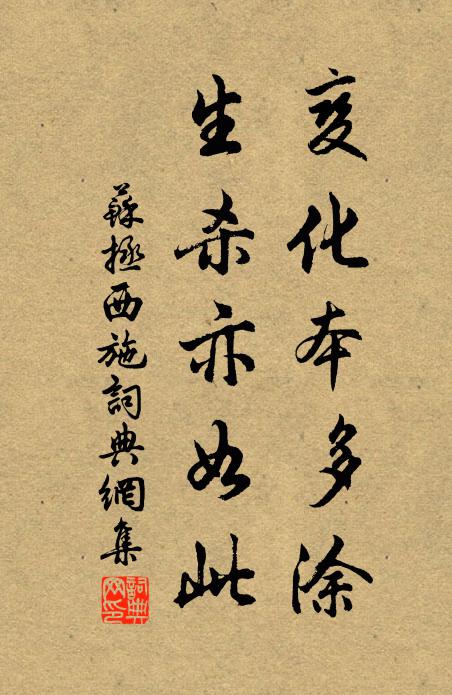 变化本多涂
生杀亦如此
蘇拯西施詞典網集
詞典
网印